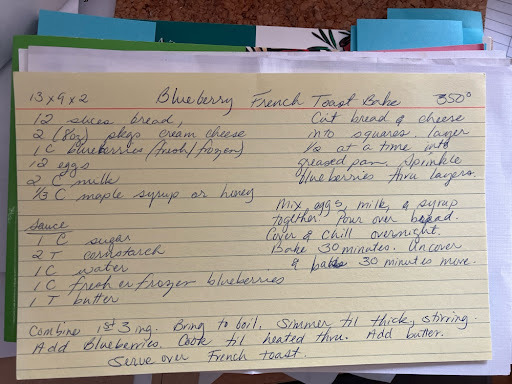 13 x 9 x 2 Blueberry French Toast Bake 350°
12 slices bread,
2 (8oz) pkgs cream cheese
1 C blueberries (fresh/frozen)
12 eggs
2 C milk
1/3 C maple syrup or honey
Sauce
1 C sugar
2 T cornstarch
1 C water
1 C fresh or frozen blueberries
1 T butter
Cut bread & cheese
into squares. layer
1/2 at a time into
greased pan. Sprinkle
blueberries thru layers.
Mix eggs, milk, & syrup
together. Pour over bread.
Cover & chill overnight.
Bake 30 minutes. Uncover
& bake 30 minutes more.
Combine 1st 3 ing. Bring to boil. Simmer til thick, stirring.
Add Blueberries. Cook til heated thru. Add butter.
Serve over French toast.